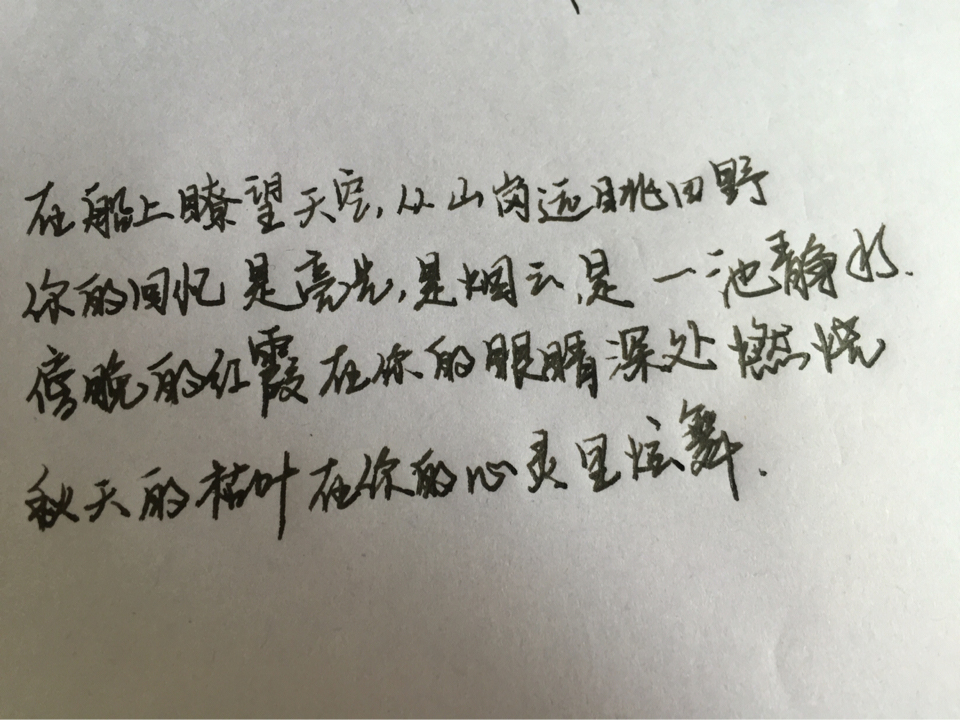 在船上瞭望天空,从山岗远眺田野
你的回忆是亮光,是烟云,是一池静水.
傍晚的红霞在你的眼睛深处燃烧
秋天的枯叶在你的心灵里炫舞.